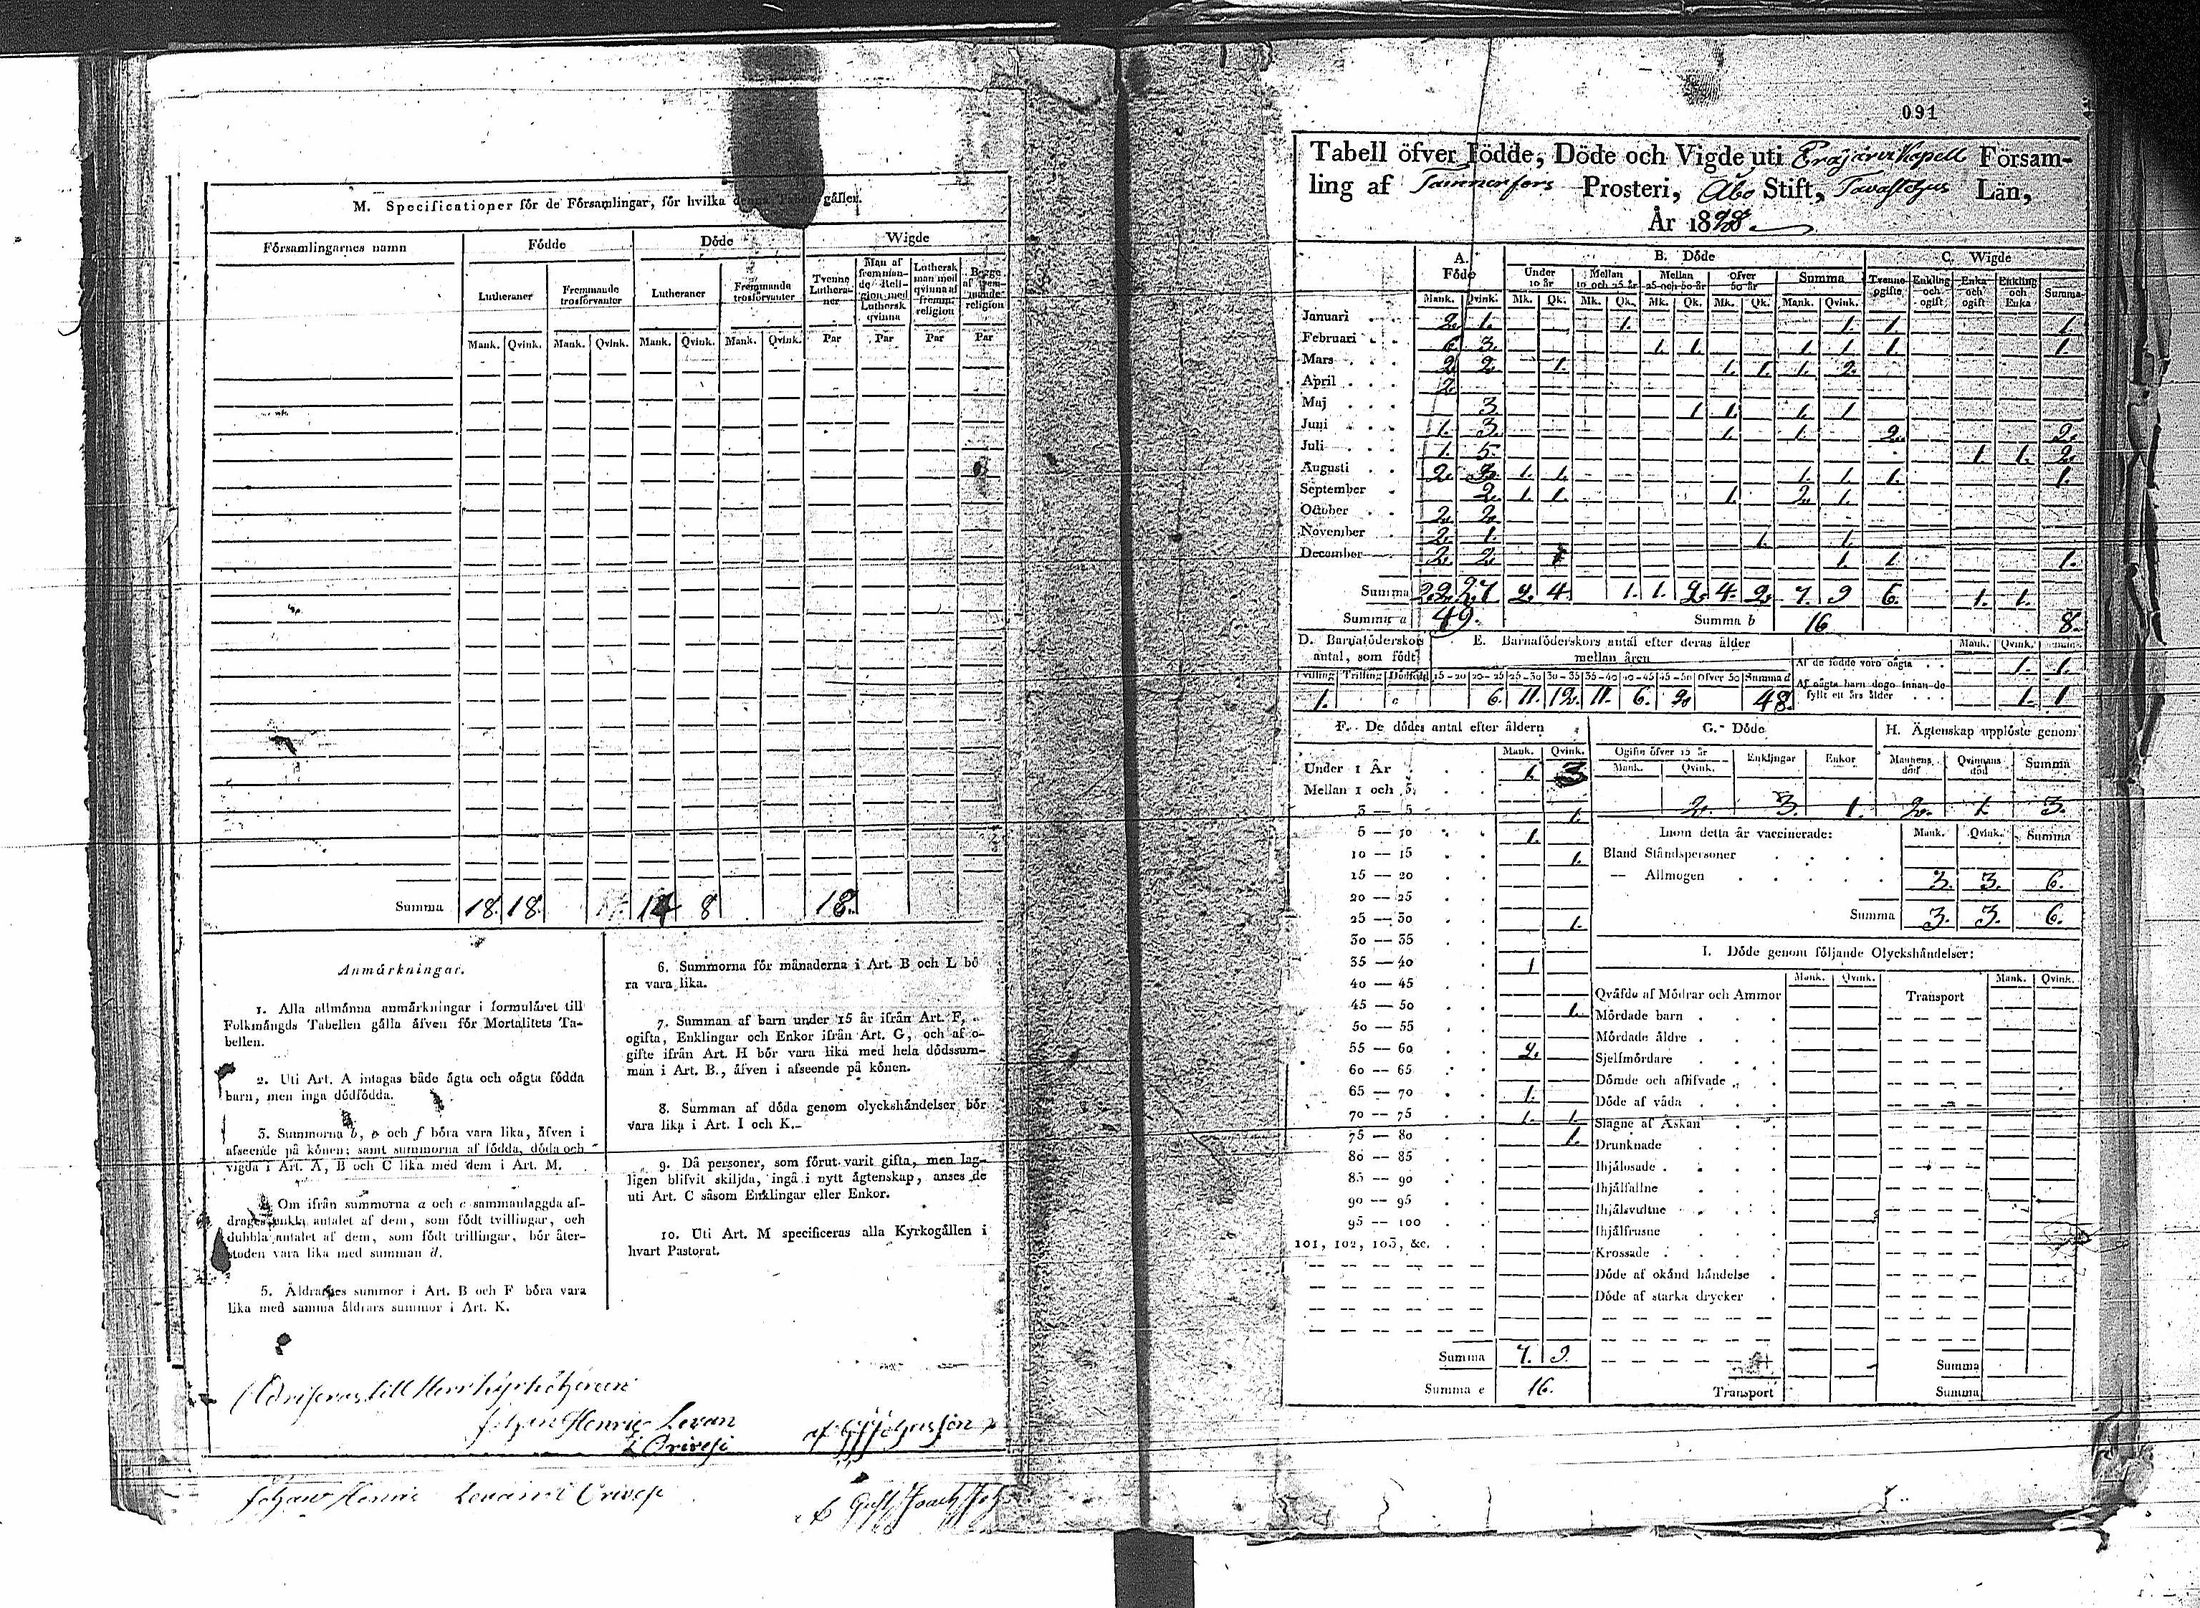 M. Specificationer för de Församlingar, för hvilka denna Tabell gäller.
Församlingarnes namn Födde Döde Wigde
Lutheraner Fremmande trosförvanter Lutheraner Fremmande trosförvanter Tvenne Lutheraner Man af fremmande Religion med Luthersk qvinna Luthersk man med qvinna af fremm: religion Begge af fremmande religion
Mank. Qvink. Mank. Qvink. Mank. Qvink. Mank. Qvink. Par Par Par Par
Summa 18. 18. 14 8 18.
Anmärkningar.
1. Alla allmänna anmärkningar i formuläret till
Folkmängds Tabellen gälla äfven för Mortalitets Ta-
bellen.
2. Uti Art. A intagas både ägta och oägta födda
barn, men inga dödfödda.
3. Summorna b, e och f böra vara lika, äfven i
afseende på könen; samt summorna af födda, döda och
vigda i Art. A, B och C lika med dem i Art. M.
4. Om ifrån summorna a och c sammanlaggda af-
drages enkla antalet af dem, som födt tvillingar, och
dubbla antalet af dem, som födt trillingar, bör åter-
stoden vara lika med summan d.
5. Äldrarnes summor i Art. B och F böra vara
lika med samma äldrars summor i Art. K.
6. Summorna för månaderna i Art. B och L bö
ra vara lika.
7. Summan af barn under 15 år ifrån Art. F,
ogifta, Enklingar och Enkor ifrån Art. G, och af o-
gifte ifrån Art. H bör vara lika med hela dödssum-
man i Art. B., äfven i afseende på könen.
8. Summan af döda genom olyckshändelser bör
vara lika i Art. I och K.
9. Då personer, som förut varit gifta, men lag-
ligen blifvit skiljda, ingå i nytt ägtenskap, anses de
uti Art. C såsom Enklingar eller Enkor.
10. Uti Art. M specificeras alla Kyrkogällen i
hvart Pastorat.
till Herr Kyrkoherren
Johan Henric Levan
i Orivesi
Johan Henric Levan i Orivesi
091
Tabell öfver Födde, Döde och Vigde uti Eräjärvi Kapell Försam-
ling af Tammerfors Prosteri, Åbo Stift, Tavastehus Län,
År 1828.
A. Födde B. Döde C. Wigde
Under 10 år Mellan 10 och 25 år Mellan 25 och 50 år Öfver 50 år Summa Tvenne ogifte Enkling och ogift Enka och ogift Enkling och Enka Summa
Mank. Qvink. Mk. Qk. Mk. Qk. Mk. Qk. Mk. Qk. Mank. Qvink.
Januari 2. 1. 1. 1. 1. 1.
Februari 6. 3. 1. 1. 1. 1. 1. 1.
Mars 2. 2. 1. 1. 1. 1. 2.
April 2.
Maj 3. 1. 1. 1. 1.
Juni 1. 3. 1. 1. 2. 2.
Juli 1. 5. 1. 1. 2.
Augusti 2. 3. 1. 1. 1. 1. 1. 1.
September 2. 1. 1. 1. 2. 1.
October 2. 2.
November 2. 1. 1. 1.
December 2. 2. 1 1. 1. 1.
Summa 22. 27 2. 4. 1. 1. 2. 4. 2. 7. 9 6. 1. 1.
Summa a 49. Summa b 16 8.
D. Barnaföderskors antal, som födt E. Barnaföderskors antal efter deras ålder mellan åren
Mank. Qvink. Summa
Tvilling Trilling Dödföld 15-20 20-25 25-30 30-35 35-40 40-45 45-50 Öfver 50 Summa d
Af de födde voro oägta 1. 1.
1. c 6. 11. 12. 11. 6. 2. 48.
Af oägta barn dogo innan de fyllt ett års ålder 1. 1
F. De dödes antal efter åldern
Mank. Qvink.
Under 1 År 1. 3
Mellan 1 och 3
3 — 5 1.
5 — 10 1.
10 — 15 1.
15 — 20
20 — 25
25 — 30 1.
30 — 35
35 — 40 1
40 — 45
45 — 50 1.
50 — 55
55 — 60 2.
60 — 65
65 — 70 1.
70 — 75 1. 1.
75 — 80 1.
80 — 85
85 — 90
90 — 95
95 — 100
101, 102, 103, &c.
Summa 7. 9.
Summa e 16.
G. Döde
Ogifta öfver 15 år Enklingar Enkor
Mank. Qvink.
2. 3. 1.
H. Ägtenskap upplöste genom
Mannens död Qvinnans död Summa
2. 1. 3.
Inom detta år vaccinerade: Mank. Qvink. Summa
Bland Ståndspersoner
— Allmogen 3. 3. 6.
Summa 3. 3. 6.
I. Döde genom följande Olyckshändelser:
Mank. Qvink. Mank. Qvink.
Qväfde af Mödrar och Ammor Transport
Mördade barn
Mördade äldre
Sjelfmördare
Dömde och aflifvade
Döde af våda
Slagne af Åskan
Drunknade
Ihjälosade
Ihjälfallne
Ihjälsvultne
Ihjälfrusne
Krossade
Döde af okänd händelse
Döde af starka drycker
Summa
Transport Summa